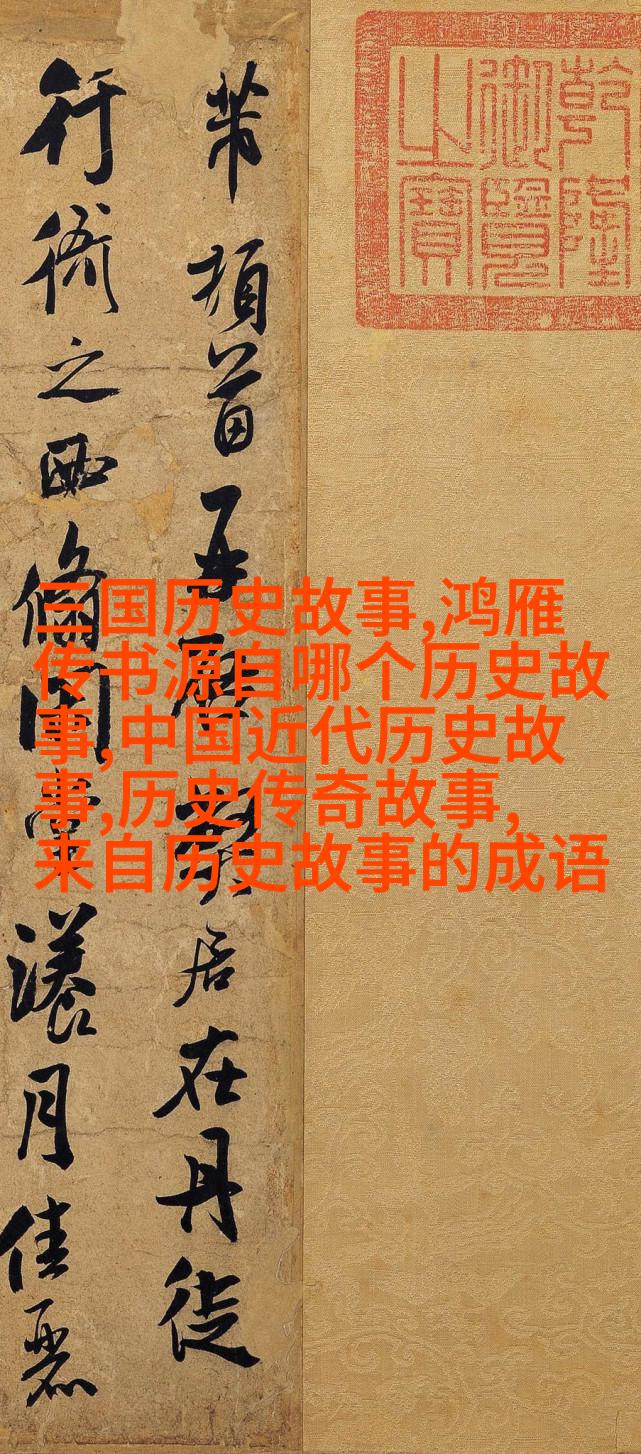 乾隆
御覽
之寶
芾頓首再啓弊居在丹徒
行衙之西翛閑堂漾月佳麗
三国历史故事,鸿雁
传书源自哪个历史故
事,中国近代历史故
事,历史传奇故事,
来自历史故事的成语